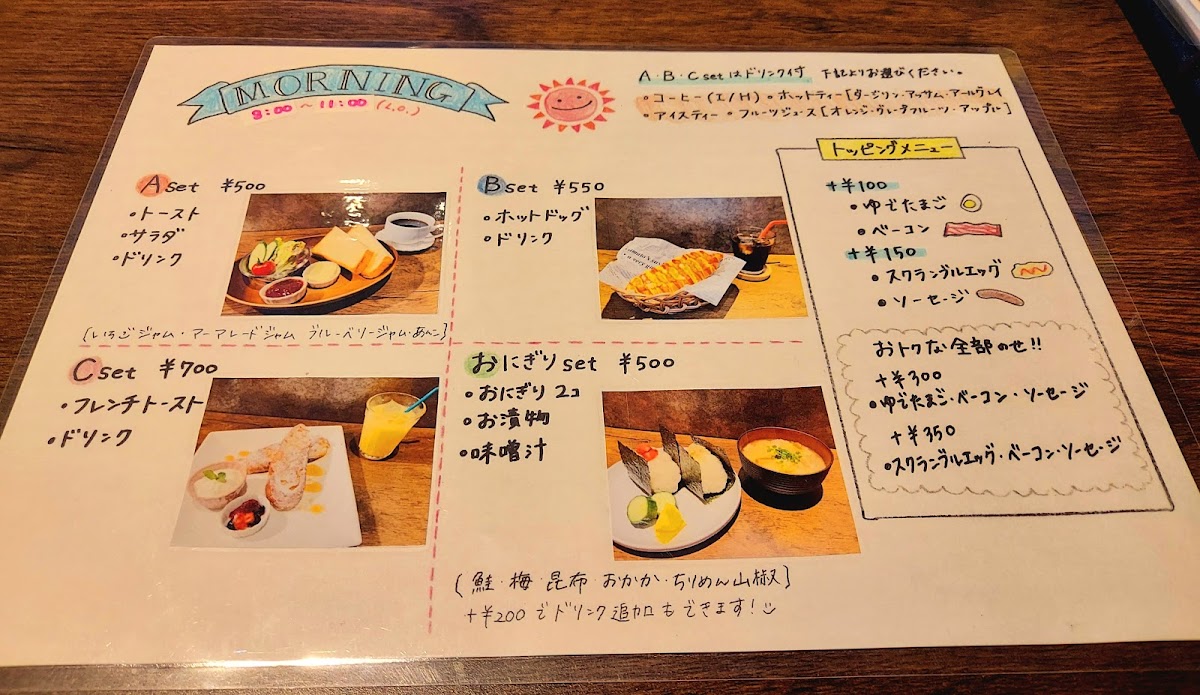 MORNING
8:00 〜 11:00 (L.O.)
A・B・Cset はドリンク付 下記よりお選びください。
・コーヒー(I/H) ・ホットティー[ダージリン・アッサム・アールグレイ
・アイスティー ・フルーツジュース[オレンジ・グレープフルーツ・アップル]
Aset ¥500
・トースト
・サラダ
・ドリンク
[いちごジャム・マーマレードジャム ブルーベリージャム・あんこ]
Bset ¥550
・ホットドッグ
・ドリンク
Cset ¥700
・フレンチトースト
・ドリンク
おにぎりset ¥500
・おにぎり 2コ
・お漬物
・味噌汁
[鮭・梅・昆布・おかか・ちりめん山椒]
+¥200 でドリンク追加もできます!
トッピングメニュー
+¥100
・ゆでたまご
・ベーコン
+¥150
・スクランブルエッグ
・ソーセージ
おトクな全部のせ!!
+¥300
・ゆでたまご・ベーコン・ソーセージ
+¥350
・スクランブルエッグ・ベーコン・ソーセージ